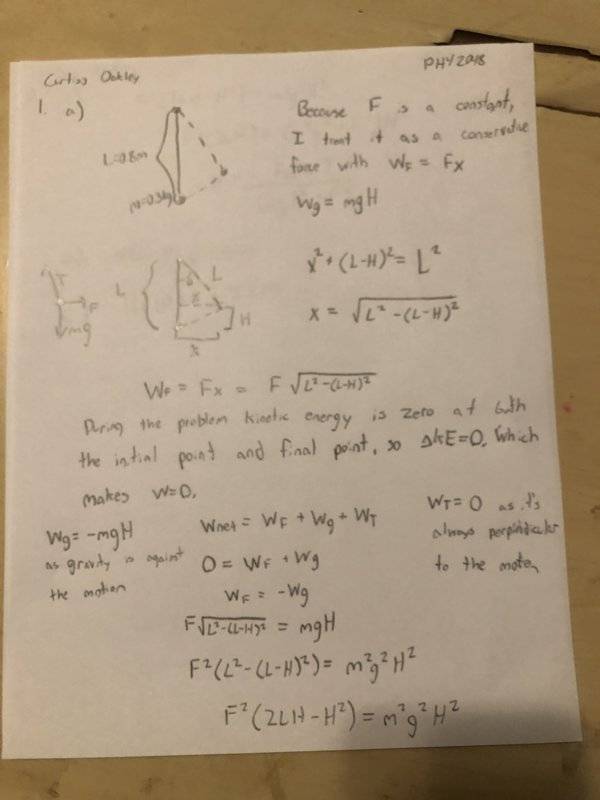 Curtiss Oakley
PHY2048
1. a)
L=0.8m
m=0.3kg
Because F is a constant,
I treat it as a conservative
force with W_F = Fx
Wg = mgH
T
F
mg
L
L
H
x
x² + (L-H)² = L²
x = √(L² - (L-H)²)
W_F = Fx = F √(L² - (L-H)²)
During the problem kinetic energy is zero at both
the intial point and final point, so ΔKE=0. Which
makes W=0.
Wg = -mgH
as gravity is against
the motion
Wnet = W_F + Wg + W_T
0 = W_F + Wg
W_F = -Wg
W_T = 0 as it's
always perpindicular
to the motion
F√(L²-(L-H)²) = mgH
F²(L²-(L-H)²) = m²g²H²
F²(2LH-H²) = m²g²H²